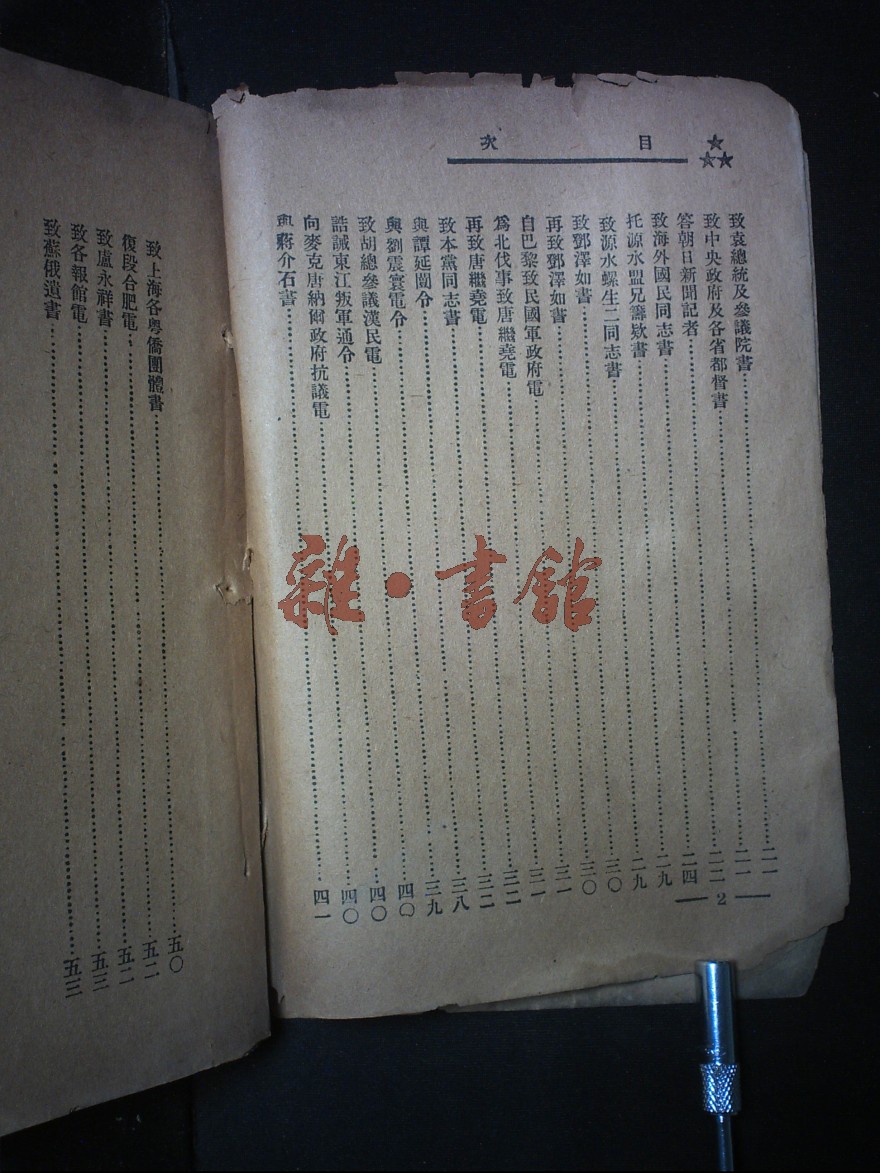 目次
致袁總統及參議院書……二一
致中央政府及各省都督書……二一
答朝日新聞記者……二二
致海外國民同志書……二四
托源水盟兄籌欵書……二九
致源水螺生二同志書……二九
致鄧澤如書……三〇
再致鄧澤如書……三〇
自巴黎致民國軍政府電……三一
爲北伐事致唐繼堯電……三一
再致唐繼堯電……三二
致本黨同志書……三二
與譚延闓令……三八
與劉震寰電令……三九
致胡總參議漢民電……四〇
誥誡東江叛軍通令……四〇
向麥克唐納爾政府抗議電……四〇
與蔣介石書……四一
2
致上海各粵僑團體書……五〇
復段合肥電……五二
致盧永祥書……五二
致各報館電……五三
致蘇俄遺書……五三
雜·書館